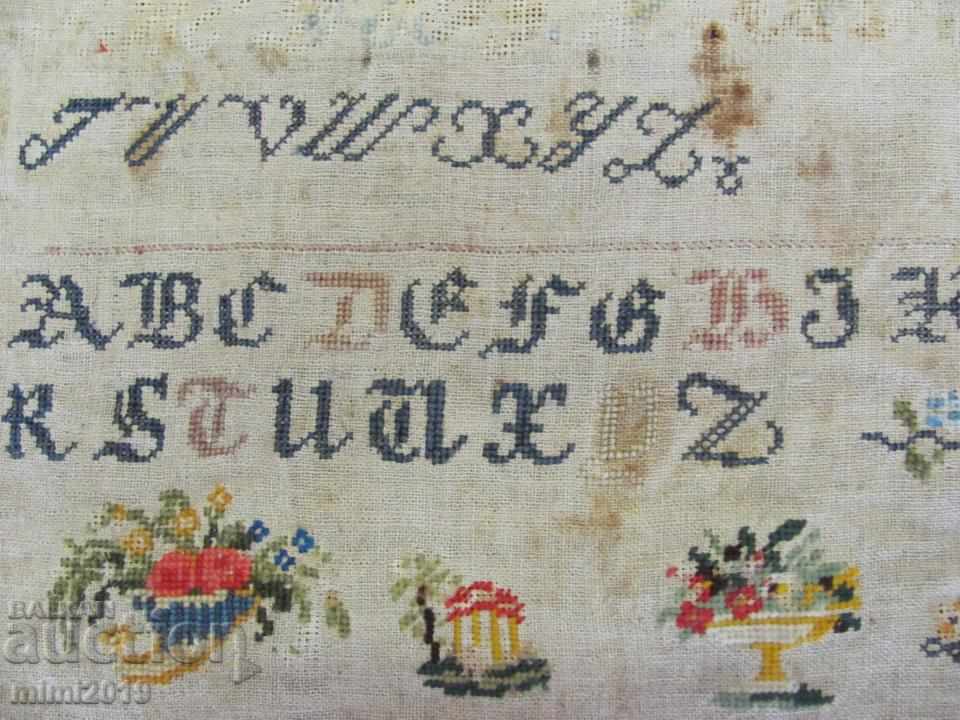 T U V W X Y Z
A B C D E F G H I K
R S T U W X Y Z
BALKAN
auction
mimi2019